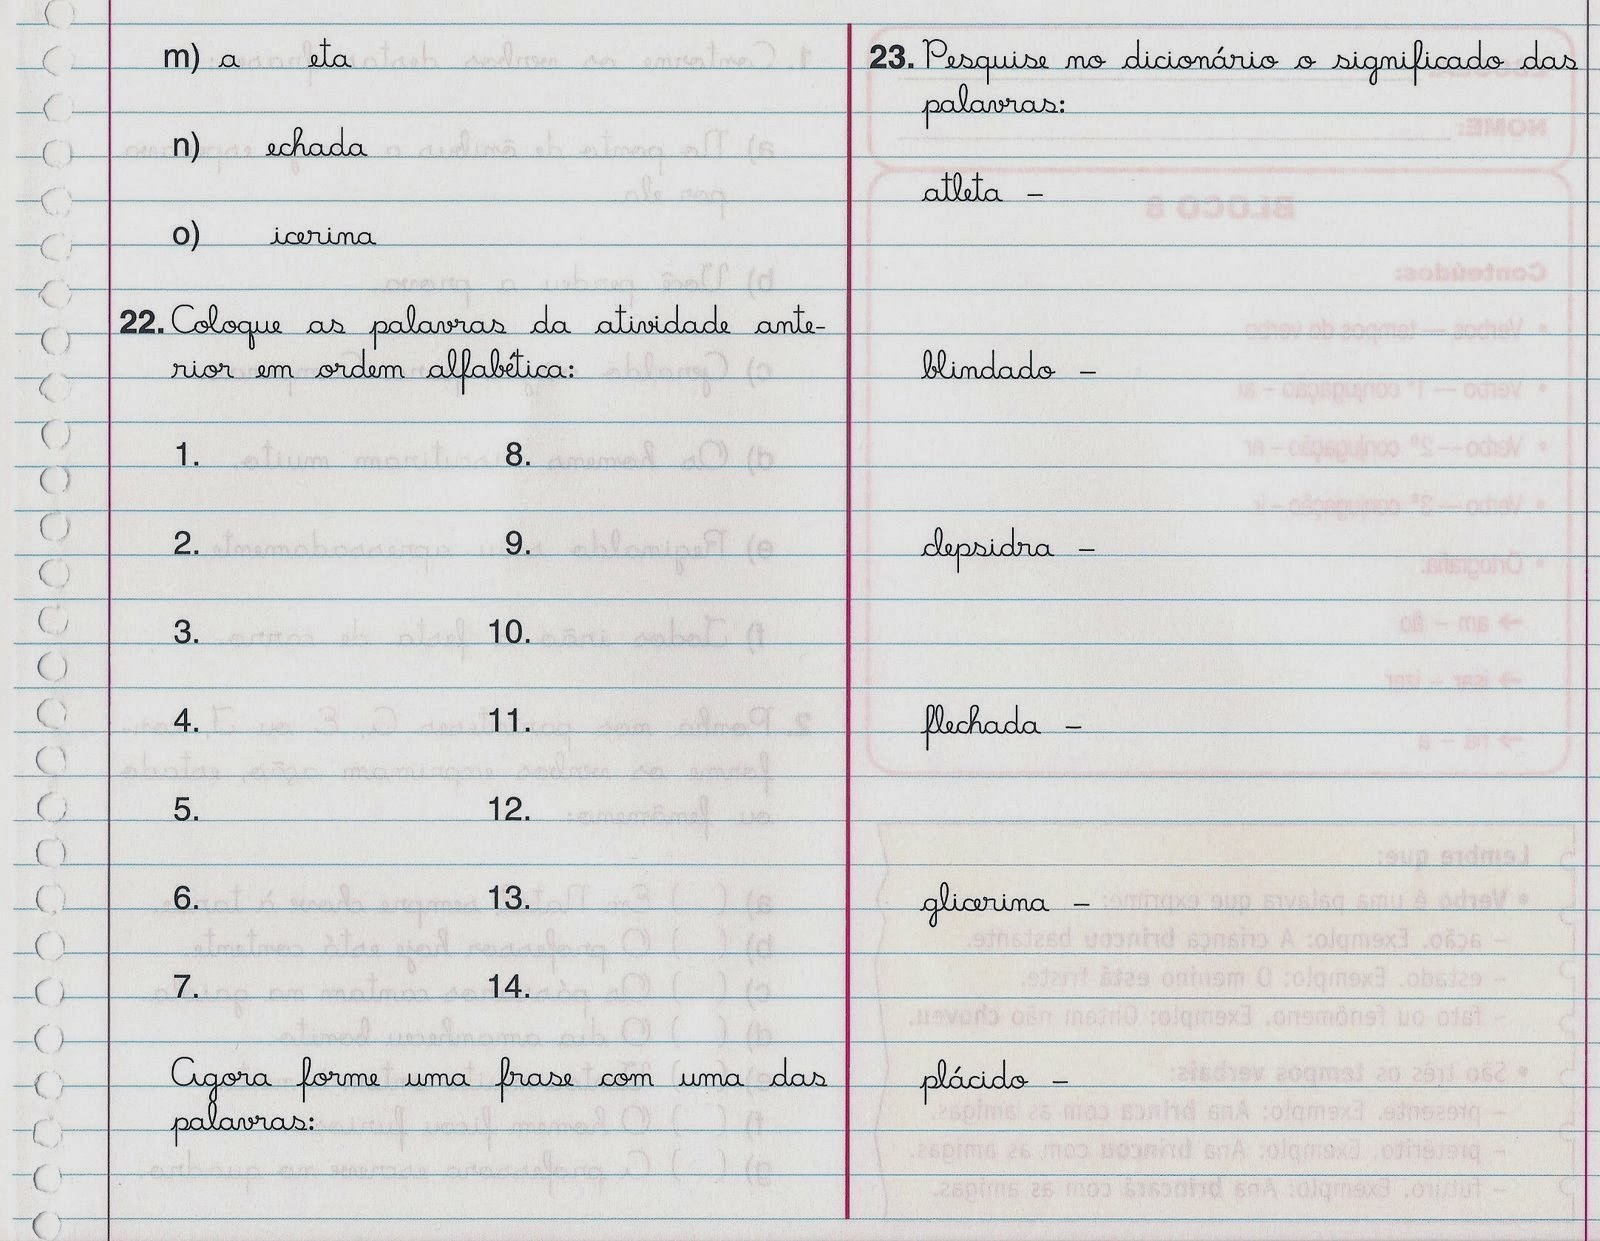 m) a   eta
n)   echada
o)   icerina
22. Coloque as palavras da atividade ante-
rior em ordem alfabética:
1.   8.
2.   9.
3.   10.
4.   11.
5.   12.
6.   13.
7.   14.
Agora forme uma frase com uma das
palavras:
23. Pesquise no dicionário o significado das
palavras:
atleta –
blindado –
clepsidra –
flechada –
glicerina –
plácido –